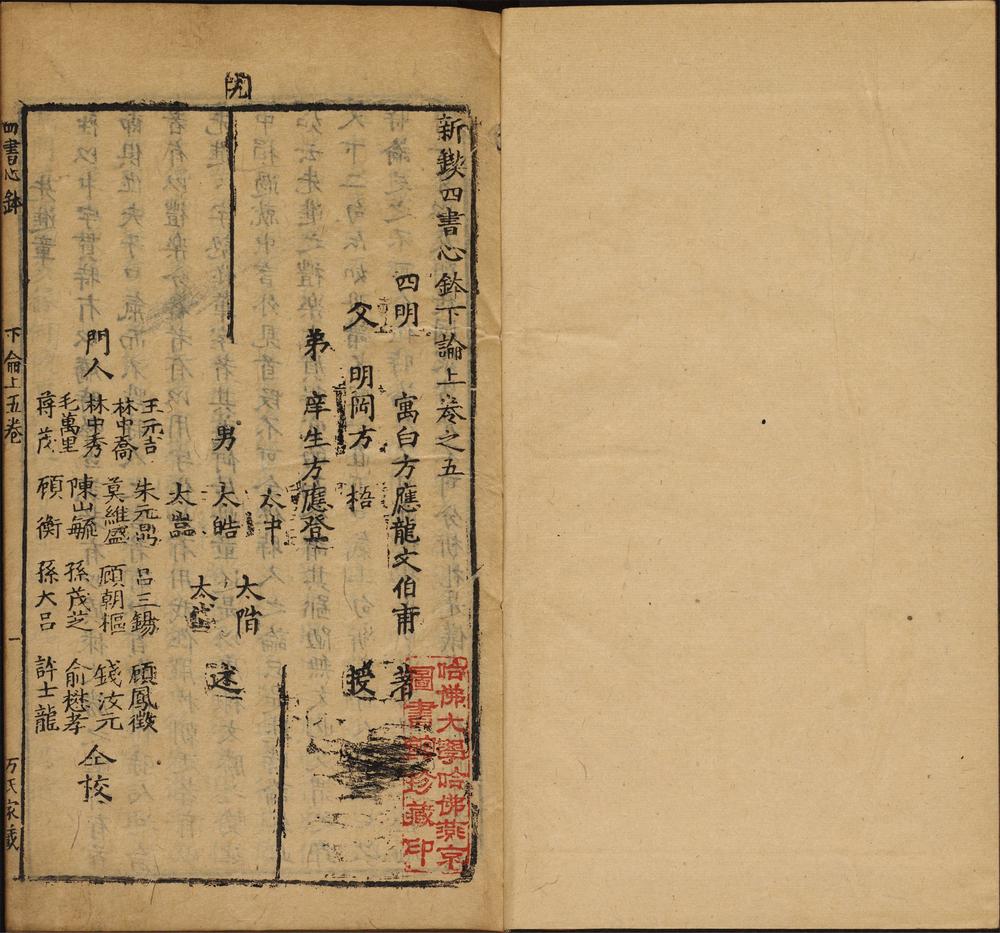 新鍥四書心鉢下論上卷之五
四明 寓白方應龍文伯甫 著
父 明岡方 梧 授
弟 庠生方應登
太中
太階
男 太皓 述
太
太
門人
王元吉 朱元鼎 呂三錫 顧鳳徵
林中喬 莫維盛 顧朝樞 錢汝元
林中秀 陳山毓 孫茂芝 俞懋孝 仝校
毛萬里
蔣茂 顧衡 孫大呂 許士龍
四書心鉢 下侖上五卷 一 方氏家藏
哈佛大學哈佛燕京
圖書館珍藏印